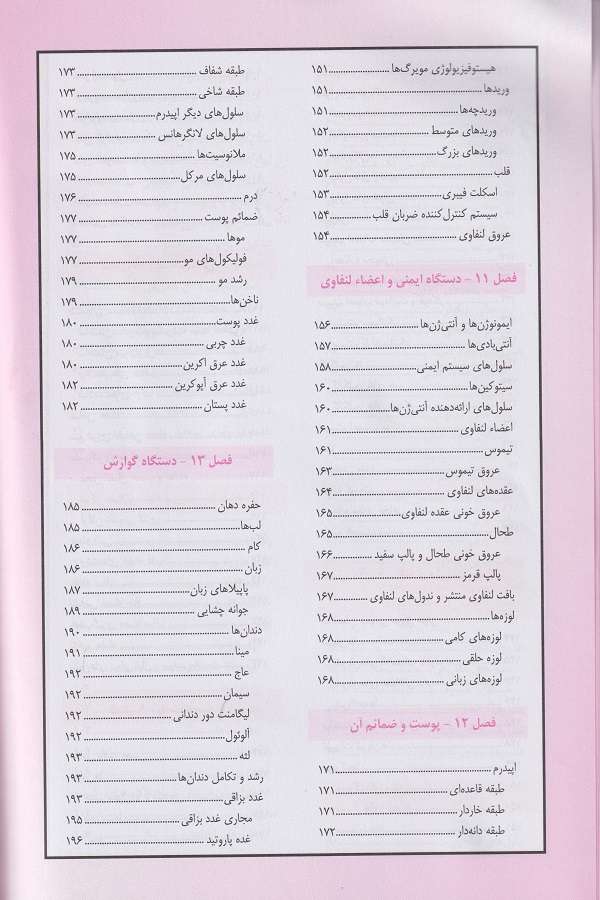 هیستوفیزیولوژی مویرگ‌ها ........ ۱۵۱
وریدها ........ ۱۵۱
وریدچه‌ها ........ ۱۵۱
وریدهای متوسط ........ ۱۵۲
وریدهای بزرگ ........ ۱۵۲
قلب ........ ۱۵۲
اسکلت فیبری ........ ۱۵۳
سیستم کنترل‌کننده ضربان قلب ........ ۱۵۴
عروق لنفاوی ........ ۱۵۴
فصل ۱۱ - دستگاه ایمنی و اعضاء لنفاوی
ایمونوژن‌ها و آنتی‌ژن‌ها ........ ۱۵۶
آنتی‌بادی‌ها ........ ۱۵۷
سلول‌های سیستم ایمنی ........ ۱۵۸
سیتوکین‌ها ........ ۱۶۰
سلول‌های ارائه‌دهنده آنتی‌ژن‌ها ........ ۱۶۰
اعضاء لنفاوی ........ ۱۶۱
تیموس ........ ۱۶۱
عروق تیموس ........ ۱۶۳
عقده‌های لنفاوی ........ ۱۶۴
عروق خونی عقده لنفاوی ........ ۱۶۵
طحال ........ ۱۶۵
عروق خونی طحال و پالپ سفید ........ ۱۶۶
پالپ قرمز ........ ۱۶۷
بافت لنفاوی منتشر و ندول‌های لنفاوی ........ ۱۶۷
لوزه‌ها ........ ۱۶۸
لوزه‌های کامی ........ ۱۶۸
لوزه حلقی ........ ۱۶۸
لوزه‌های زبانی ........ ۱۶۸
فصل ۱۲ - پوست و ضمائم آن
اپیدرم ........ ۱۷۱
طبقه قاعده‌ای ........ ۱۷۱
طبقه خاردار ........ ۱۷۱
طبقه دانه‌دار ........ ۱۷۲
طبقه شفاف ........ ۱۷۳
طبقه شاخی ........ ۱۷۳
سلول‌های دیگر اپیدرم ........ ۱۷۳
سلول‌های لانگرهانس ........ ۱۷۳
ملانوسیت‌ها ........ ۱۷۵
سلول‌های مرکل ........ ۱۷۵
درم ........ ۱۷۶
ضمائم پوست ........ ۱۷۷
موها ........ ۱۷۷
فولیکول‌های مو ........ ۱۷۷
رشد مو ........ ۱۷۹
ناخن‌ها ........ ۱۷۹
غدد پوست ........ ۱۸۰
غدد چربی ........ ۱۸۰
غدد عرق اکرین ........ ۱۸۰
غدد عرق آپوکرین ........ ۱۸۲
غدد پستان ........ ۱۸۲
فصل ۱۳ - دستگاه گوارش
حفره دهان ........ ۱۸۵
لب‌ها ........ ۱۸۵
کام ........ ۱۸۶
زبان ........ ۱۸۶
پاپیلاهای زبان ........ ۱۸۷
جوانه چشایی ........ ۱۸۹
دندان‌ها ........ ۱۹۰
مینا ........ ۱۹۱
عاج ........ ۱۹۲
سیمان ........ ۱۹۲
لیگامنت دور دندانی ........ ۱۹۲
آلوئول ........ ۱۹۲
لثه ........ ۱۹۳
رشد و تکامل دندان‌ها ........ ۱۹۳
غدد بزاقی ........ ۱۹۳
مجاری غدد بزاقی ........ ۱۹۵
غده پاروتید ........ ۱۹۶